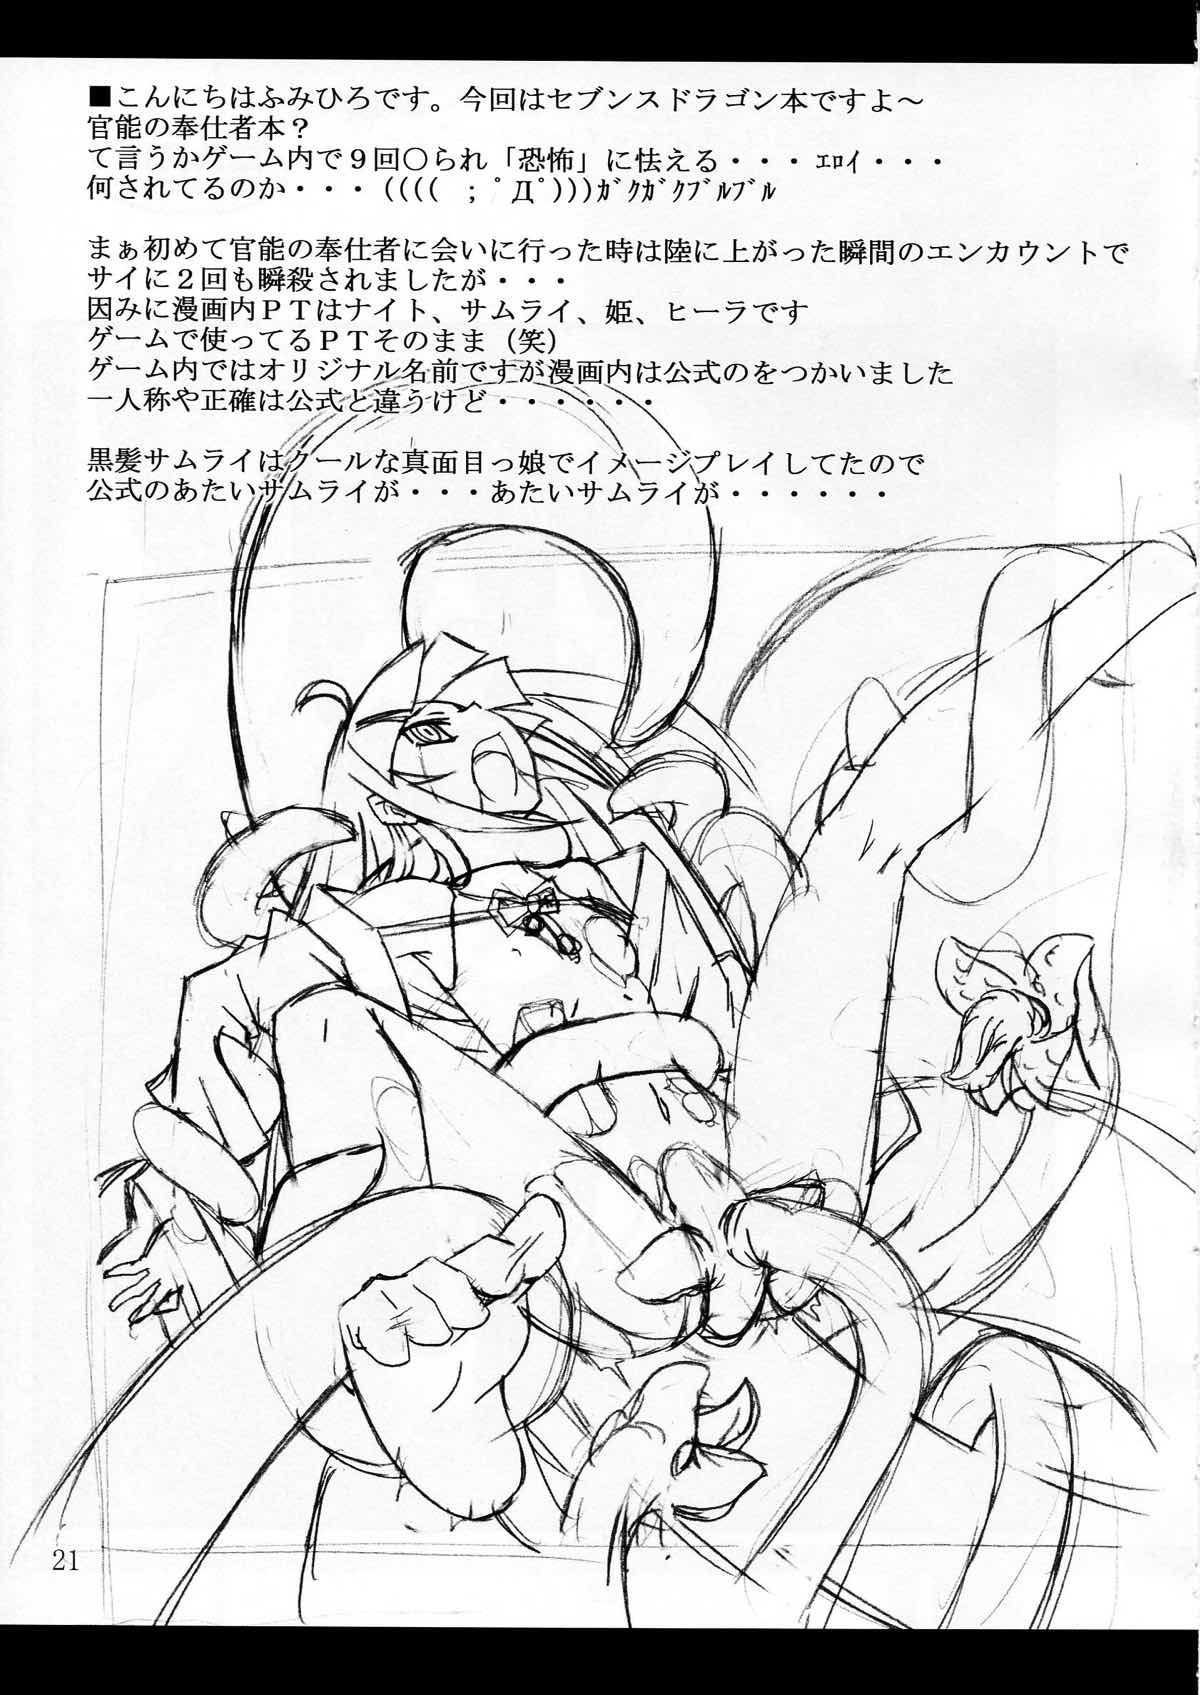 ■こんにちはふみひろです。今回はセブンスドラゴン本ですよ～
官能の奉仕者本？
て言うかゲーム内で９回〇られ「恐怖」に怯える・・・ｴﾛｲ・・・
何されてるのか・・・（(((　；ﾟДﾟ)))ｶﾞｸｶﾞｸﾌﾞﾙﾌﾞﾙ
まぁ初めて官能の奉仕者に会いに行った時は陸に上がった瞬間のエンカウントで
サイに２回も瞬殺されましたが・・・
因みに漫画内ＰＴはナイト、サムライ、姫、ヒーラです
ゲームで使ってるＰＴそのまま（笑）
ゲーム内ではオリジナル名前ですが漫画内は公式のをつかいました
一人称や正確は公式と違うけど・・・・・・
黒髪サムライはクールな真面目っ娘でイメージプレイしてたので
公式のあたいサムライが・・・あたいサムライが・・・・・・
21